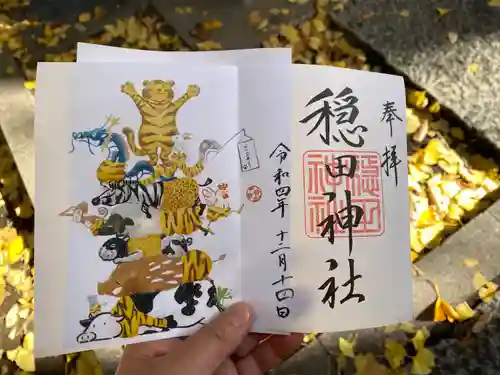 奉拝
穏田神社
穏田
神社
令和四年 十二月十四日